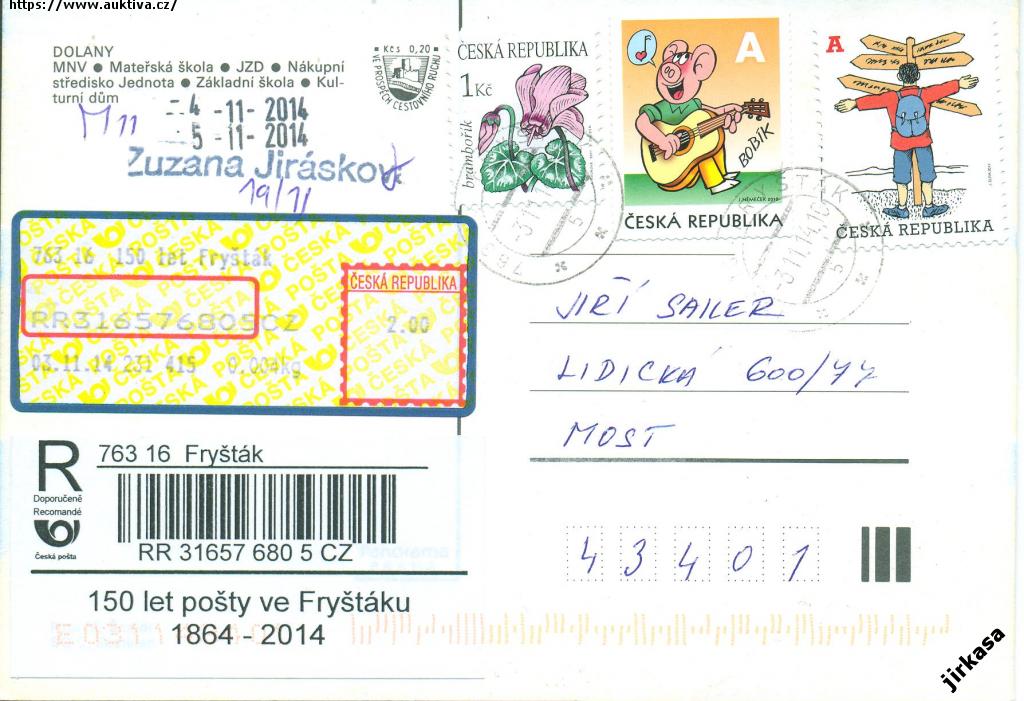 https://www.auktiva.cz/
DOLANY
MNV ● Mateřská škola ● JZD ● Nákupní
středisko Jednota ● Základní škola ● Kul-
turní dům
Kčs 0,20
VE PROSPĚCH CESTOVNÍHO RUCHU
4 -11- 2014
5 -11- 2014
M11
Zuzana Jirásková
19/11
ČESKÁ REPUBLIKA
1 Kč
brambořík
A
BOBÍK
J. NĚMEČEK 2010
ČESKÁ REPUBLIKA
A
ČESKÁ REPUBLIKA
763 16 150 let Fryšták
RR316576805CZ
03.11.14 231 415 0.004kg
ČESKÁ REPUBLIKA
2.00
ČESKÁ POŠTA
JIŘÍ SAILER
LIDICKÁ 600/77
MOST
43401
R
Doporučeně
Recomandé
Česká pošta
763 16 Fryšták
RR 31657 680 5 CZ
150 let pošty ve Fryštáku
1864 - 2014
jirkasa